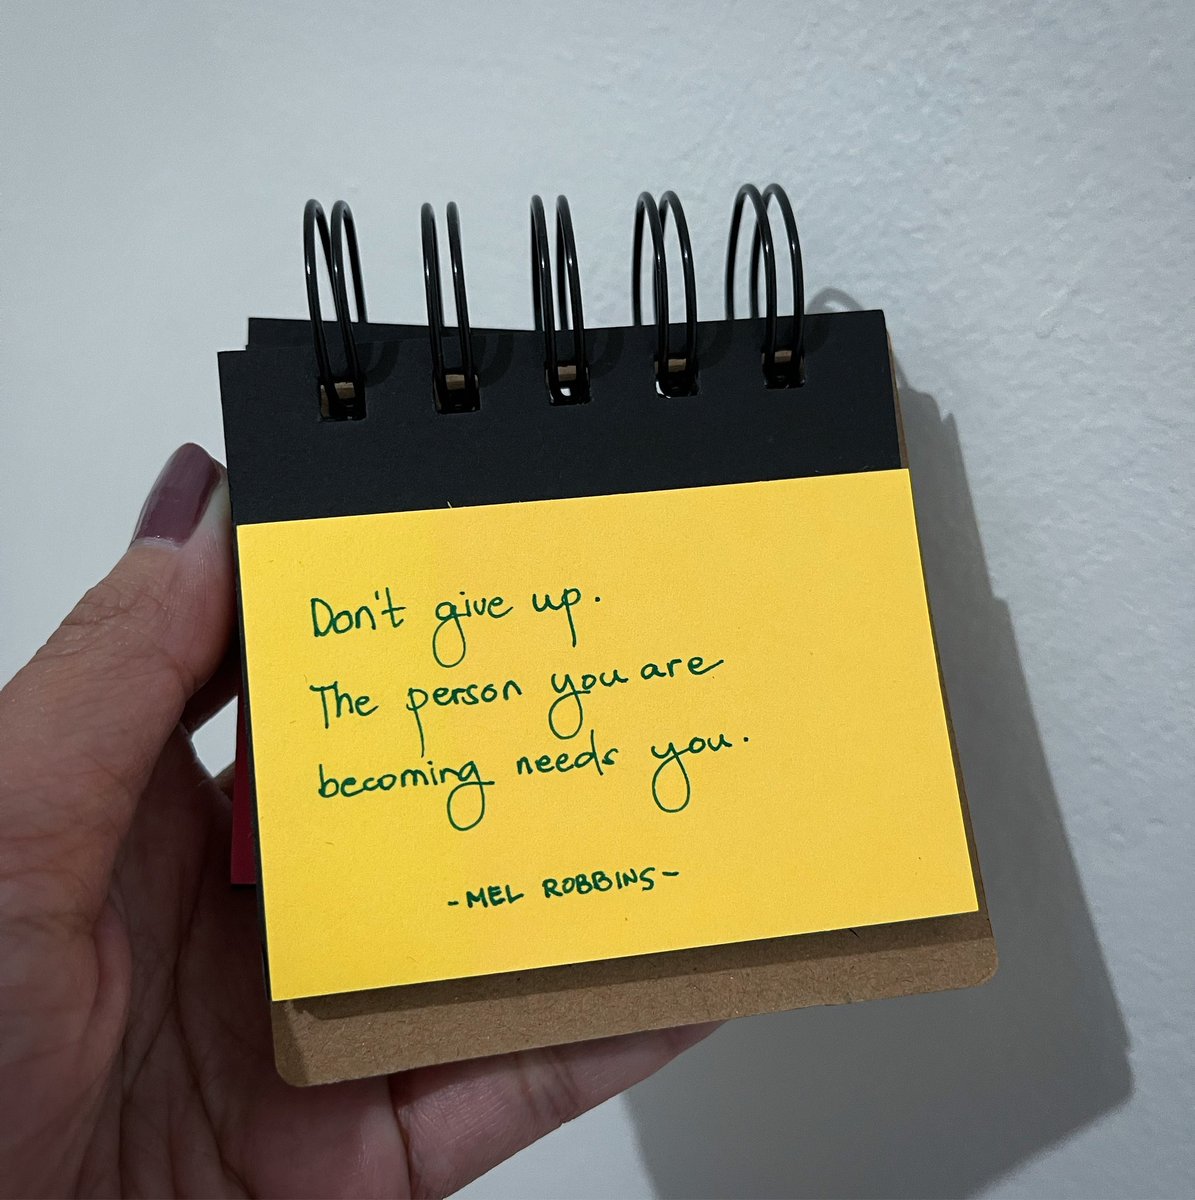 Don't give up.
The person you are
becoming needs you.
-MEL ROBBINS-